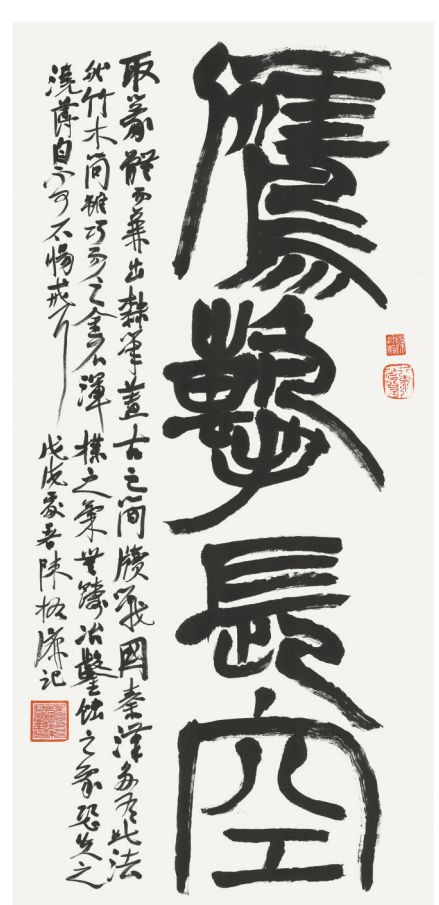 鷹擊長空
取篆體而兼出隸筆蓋古之簡牘戰國秦漢多有此法
然竹木簡雖巧而乏金石渾樸之氣無鑄冶鑿蝕之象恐失之
澆薄自不可不惕戒耳
戊戌歲春陳振濂記